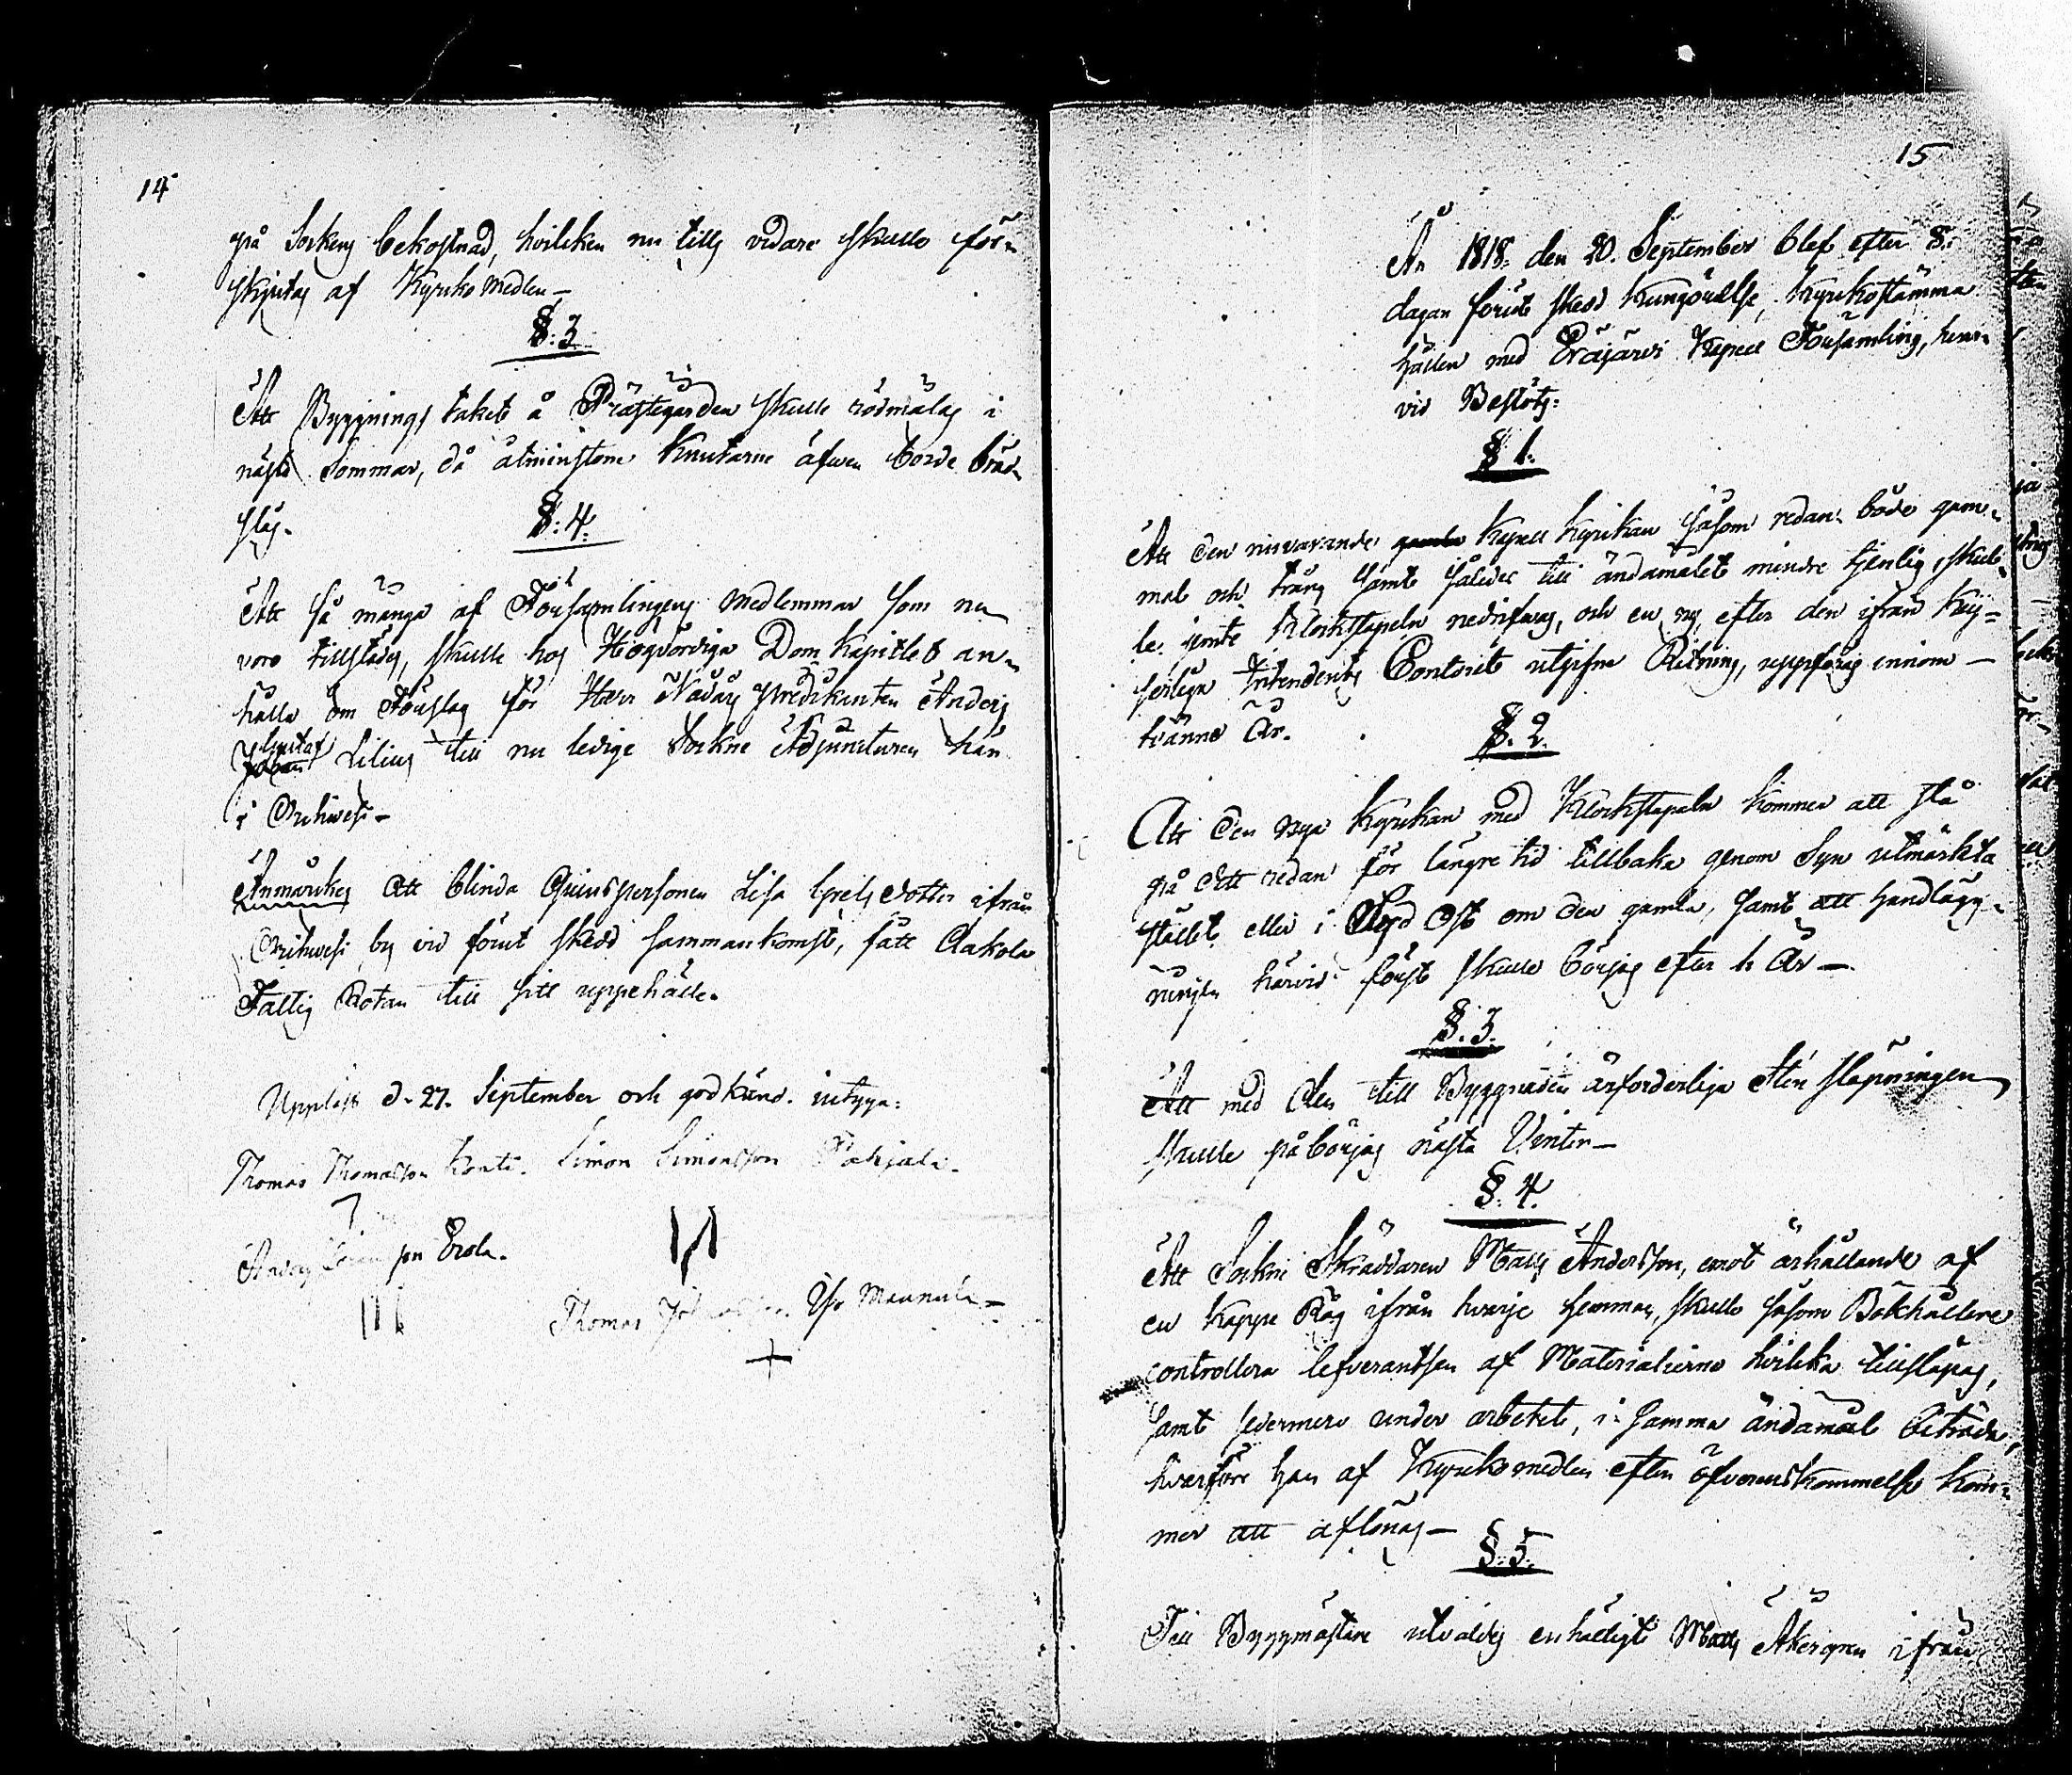 14
på Sockens bekostnad, hvilcken nu tills vidare skulle för=
skjutas af Kyrko medlen —
§. 3.
Att Bygnings taket å Prästegården skulle rödmålas i
nästa Sommar, då åtminstone Knutarne äfwen borde bräd=
slås.
§. 4.
Att så många af Församlingens medlemmar som nu
voro tillstädes, skulle hos Högvördiga Dom Kapitlet an=
hålla om Förslag för Herr Nådårs predikanten Anders
Gustaf
Johan Lilius till nu ledige Sockne Adjuncturen här
i Orihwesi —
Anmärkes att blinda Qvinspersonen Lisa Grels dotter ifrån
Orihwesi by vid förut skedd sammankomst, fått Aakola
Fattig Rotan till sitt uppehälle.
Uppläst d. 27. September och godkänd. intyga:
Thomas Thomasson Konti. Simon Simonsson Pohjala.
Anders son Erola.
Thomas Iso Maunula —
15
År 1818. den 20. September blef efter 8.
dagar förut skedd Kungörelse, Kyrkostämma
hållen med Eräjärvi Kapell Församling, hvar=
vid Beslöts:
§ 1.
Att den nuvarande gamla Kapell Kyrkan såsom redan både gam=
mal och trång samt således till ändamålet mindre tjenlig, skul=
le jemte Klockstapeln nedrifwas, och en ny, efter den ifrån Kej=
serliga Intendents Contoret utgifne Ritning, uppföras innom —
tvänne År.
§. 2.
Att den nya Kyrkan med Klockstapeln kommer att stå
på det redan för längre tid tillbaka genom Syn utmärkta
stället eller i Ost om den gamla, samt att handlägg=
ningen härvid först skulle börjas efter 1. År —
§. 3.
Att med den till Byggnaden ärforderliga Sten släpningen
skulle påbörjas nästa Vinter —
§. 4.
Att Sockne Skräddaren Matts Andersson, emot ärhållande af
en Kappe Råg ifrån hvarje hemman, skulle såsom Bokhållare
controllera lefverantsen af Materialierne hvilcka tillsläpas,
samt sedermera under arbetet, i samma ändamål biträda,
hvarföre han af Kyrko medlen efter öfverenskommelse kom=
mer att aflönas —
§. 5.
Till Byggmästare utvaldes enhälligt Matts Åkergren ifrån